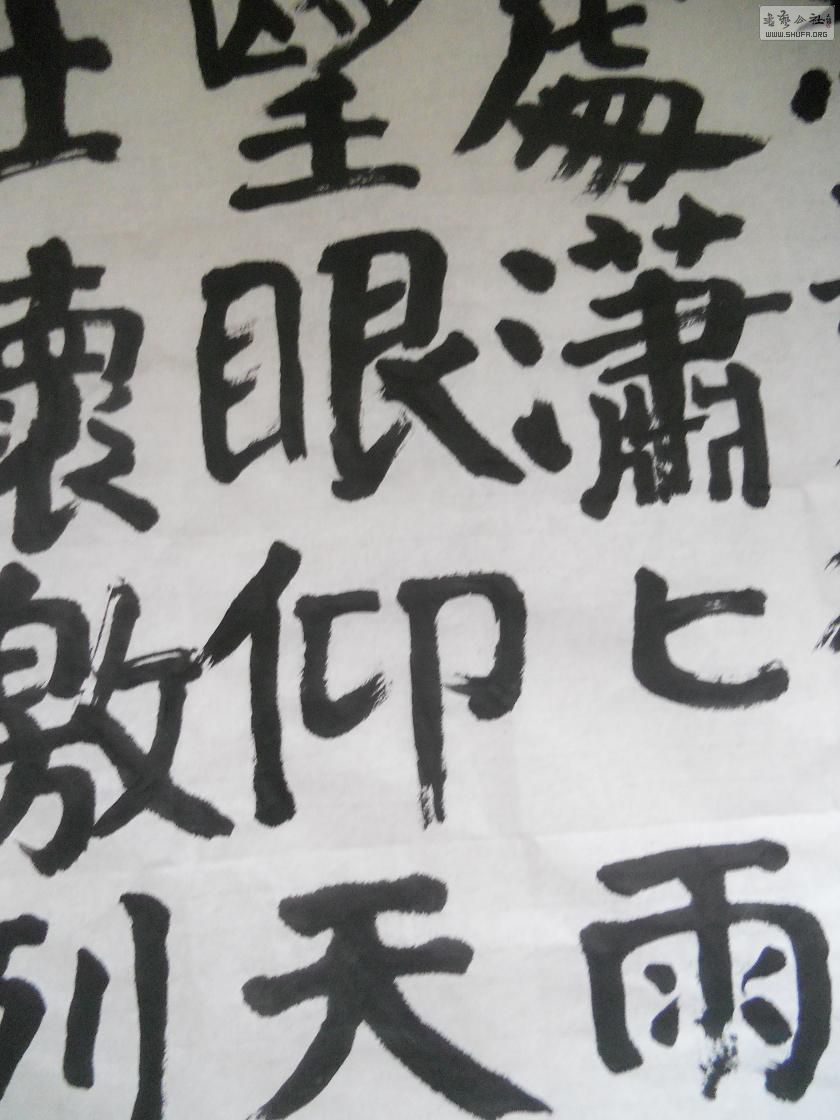 處瀟々雨
望眼仰天
壮懷激烈
書藝公社
WWW.SHUFA.ORG